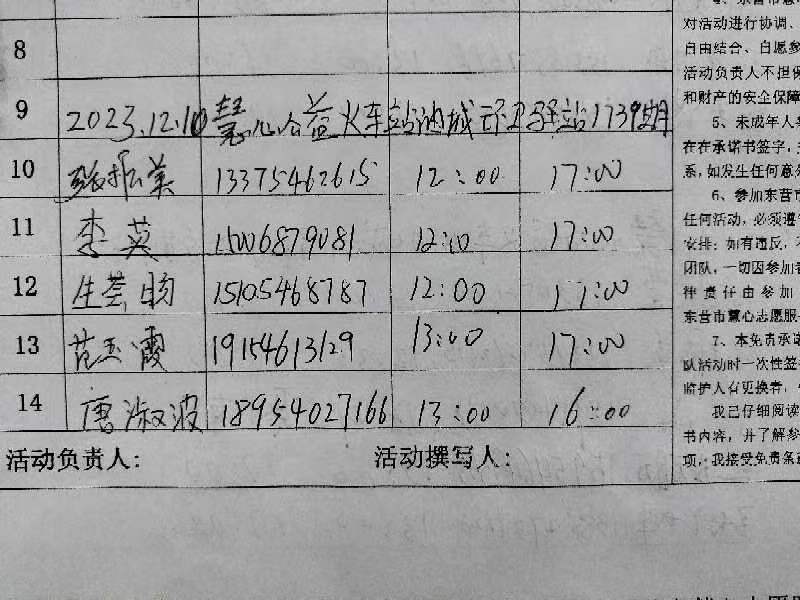 8
9 2023.12.10 慧心公益火车站油城示卫驿站1739期
10 张振美 13375462615 12:00 17:00
11 李英 15006879081 12:00 17:00
12 生芸昀 15105468787 12:00 17:00
13 范玉霞 19154613129 13:00 17:00
14 唐淑波 18954027166 13:00 16:00
活动负责人: 活动撰写人:
对活动进行协调、
自由结合、自愿参
活动负责人不担保
和财产的安全保障
5、未成年人
在在承诺书签字,
系,如发生任何意外
6、参加东营市
任何活动,必须遵
安排;如有违反,不
团队,一切因参加
律责任由参加
东营市慧心志愿服
7、本免责承诺
队活动时一次性签
监护人有更换者,
我已仔细阅读
书内容,并了解参
项,我接受免责条款